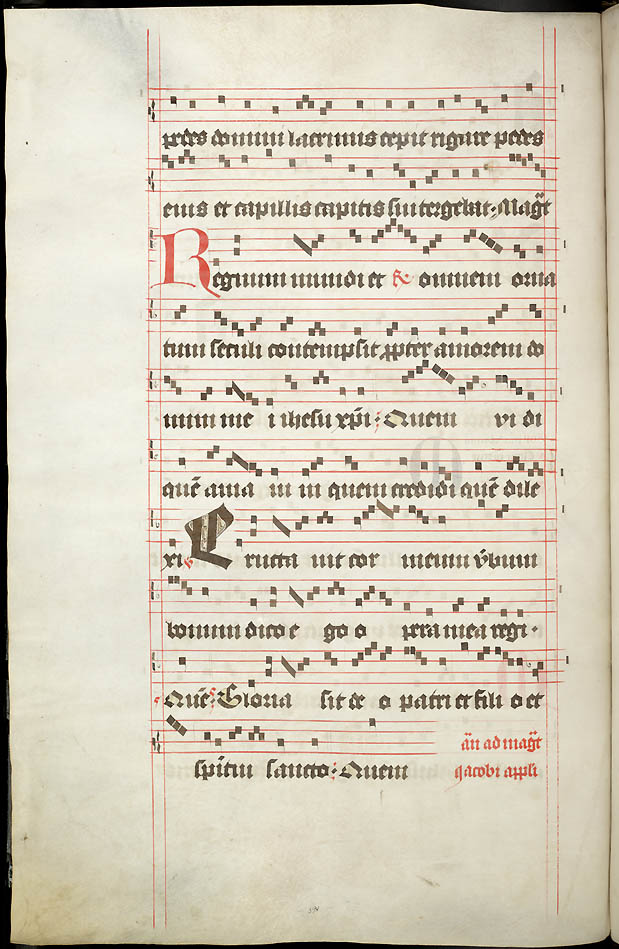 pedes domini lacrimis cepit rigare pedes
eius et capillis capitis sui tergebat. Mag̃t
Regnum mundi et ℟ omnem orna
tum seculi contempsit ꝓpter amorem do
mini me i ihesu xp̃i: Quem vi di
quē ama ui in quem credidi quē dile
xi ℣ Eructa uit cor meum v̄bum
bonum dico e go o pera mea regi.
Quē: Gloria sit de o patri et fili o et
spiritui sancto: Quem
añ ad mag̃t
Jacobi appli